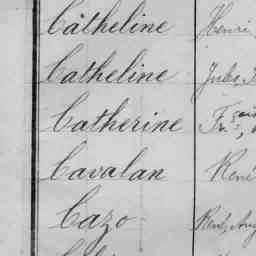 Câtheline Henri
Catheline Jules,
Catherine Fçois
Cavalan René
Cazo René, Aug